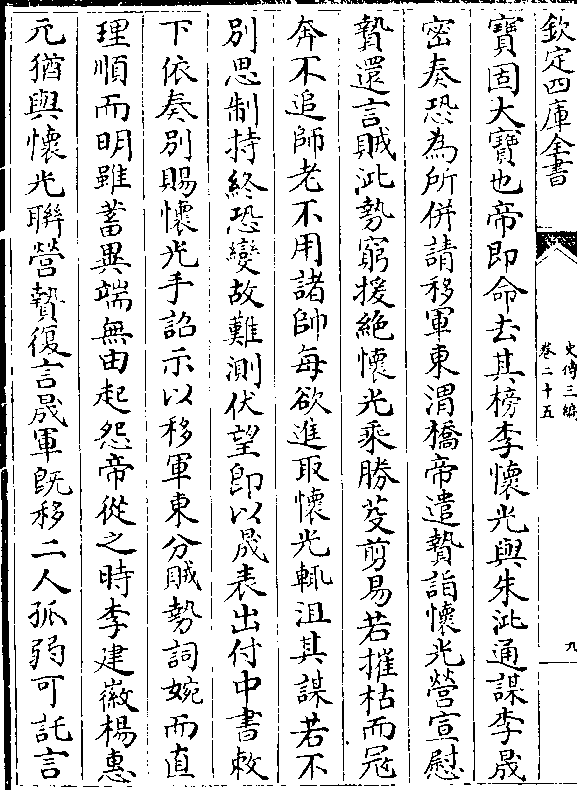 欽定四庫全書
史傳三編
卷二十五
九
寶固大寶也帝即命去其榜李懷光與朱泚通謀李晟
密奏恐為所併請移軍東渭橋帝遣贄詣懷光營宣慰
贄還言賊泚勢窮援絶懷光乘勝芟剪易若摧枯而冦
奔不追師老不用諸帥每欲進取懷光輒沮其謀若不
别思制持終恐變故難測伏望即以晟表出付中書敕
下依奏别賜懷光手詔示以移軍東分賊勢詞婉而直
理順而明雖蓄異端無由起怨帝從之時李建徽楊惠
元猶與懷光聨營贄復言晟軍既移二人孤弱可託言